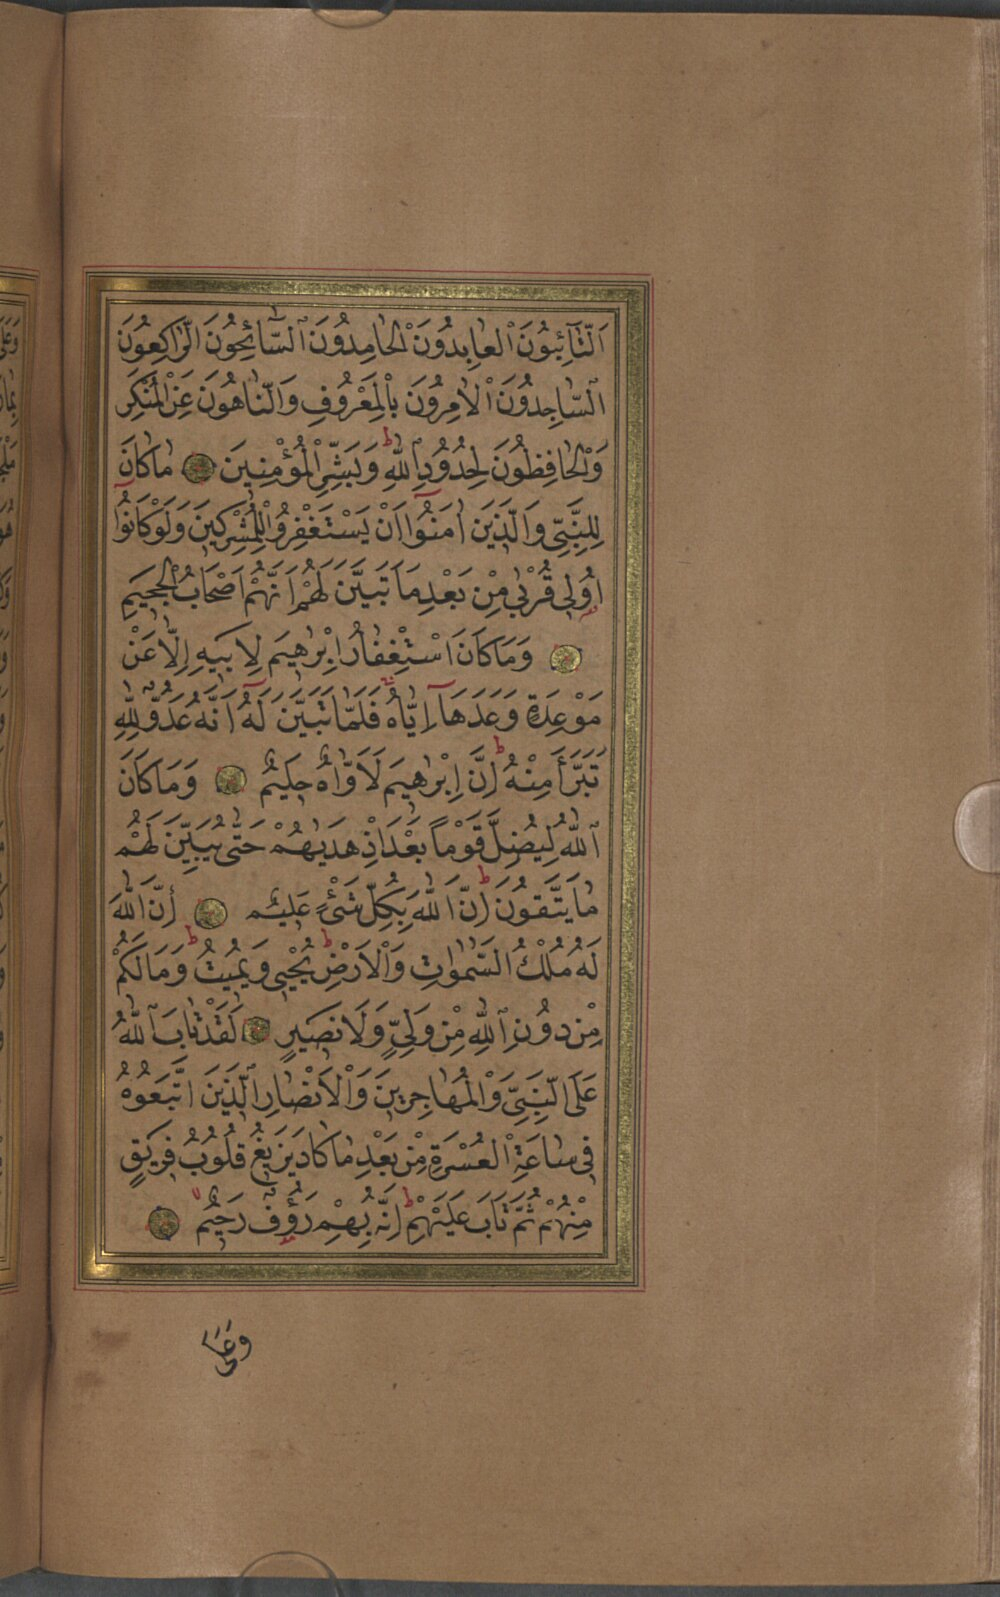 اَلتَّآئِبُونَ الْعَابِدُونَ الْحَامِدُونَ السَّآئِحُونَ الرَّاكِعُونَ
السَّاجِدُونَ الْاٰمِرُونَ بِالْمَعْرُوفِ وَالنَّاهُونَ عَنِ الْمُنْكَرِ
وَالْحَافِظُونَ لِحُدُودِ اللّٰهِ ط وَبَشِّرِ الْمُؤْمِنِينَ مَا كَانَ
لِلنَّبِيِّ وَالَّذِينَ اٰمَنُٓوا اَنْ يَسْتَغْفِرُوا لِلْمُشْرِكِينَ وَلَوْ كَانُٓوا
اُو۬لِي قُرْبٰى مِنْ بَعْدِ مَا تَبَيَّنَ لَهُمْ اَنَّهُمْ اَصْحَابُ الْجَحِيمِ
وَمَا كَانَ اسْتِغْفَارُ اِبْرٰهِيمَ لِاَبِيهِ اِلَّا عَنْ
مَوْعِدَةٍ وَعَدَهَٓا اِيَّاهُ ج فَلَمَّا تَبَيَّنَ لَهُٓ اَنَّهُ عَدُوٌّ لِلّٰهِ
تَبَرَّأَ مِنْهُ ط اِنَّ اِبْرٰهِيمَ لَاَوَّاهٌ حَلِيمٌ وَمَا كَانَ
اللّٰهُ لِيُضِلَّ قَوْمًا بَعْدَ اِذْ هَدٰيهُمْ حَتّٰى يُبَيِّنَ لَهُمْ
مَا يَتَّقُونَ ط اِنَّ اللّٰهَ بِكُلِّ شَيْءٍ عَلِيمٌ اِنَّ اللّٰهَ
لَهُ مُلْكُ السَّمٰوَاتِ وَالْاَرْضِ ط يُحْيِي وَيُمِيتُ ط وَمَا لَكُمْ
مِنْ دُونِ اللّٰهِ مِنْ وَلِيٍّ وَلَا نَصِيرٍ لَقَدْ تَابَ اللّٰهُ
عَلَى النَّبِيِّ وَالْمُهَاجِرِينَ وَالْاَنْصَارِ الَّذِينَ اتَّبَعُوهُ
فِي سَاعَةِ الْعُسْرَةِ مِنْ بَعْدِ مَا كَادَ يَزِيغُ قُلُوبُ فَرِيقٍ
مِنْهُمْ ثُمَّ تَابَ عَلَيْهِمْ ط اِنَّهُ بِهِمْ رَؤُفٌ رَحِيمٌ
وَعَلَى